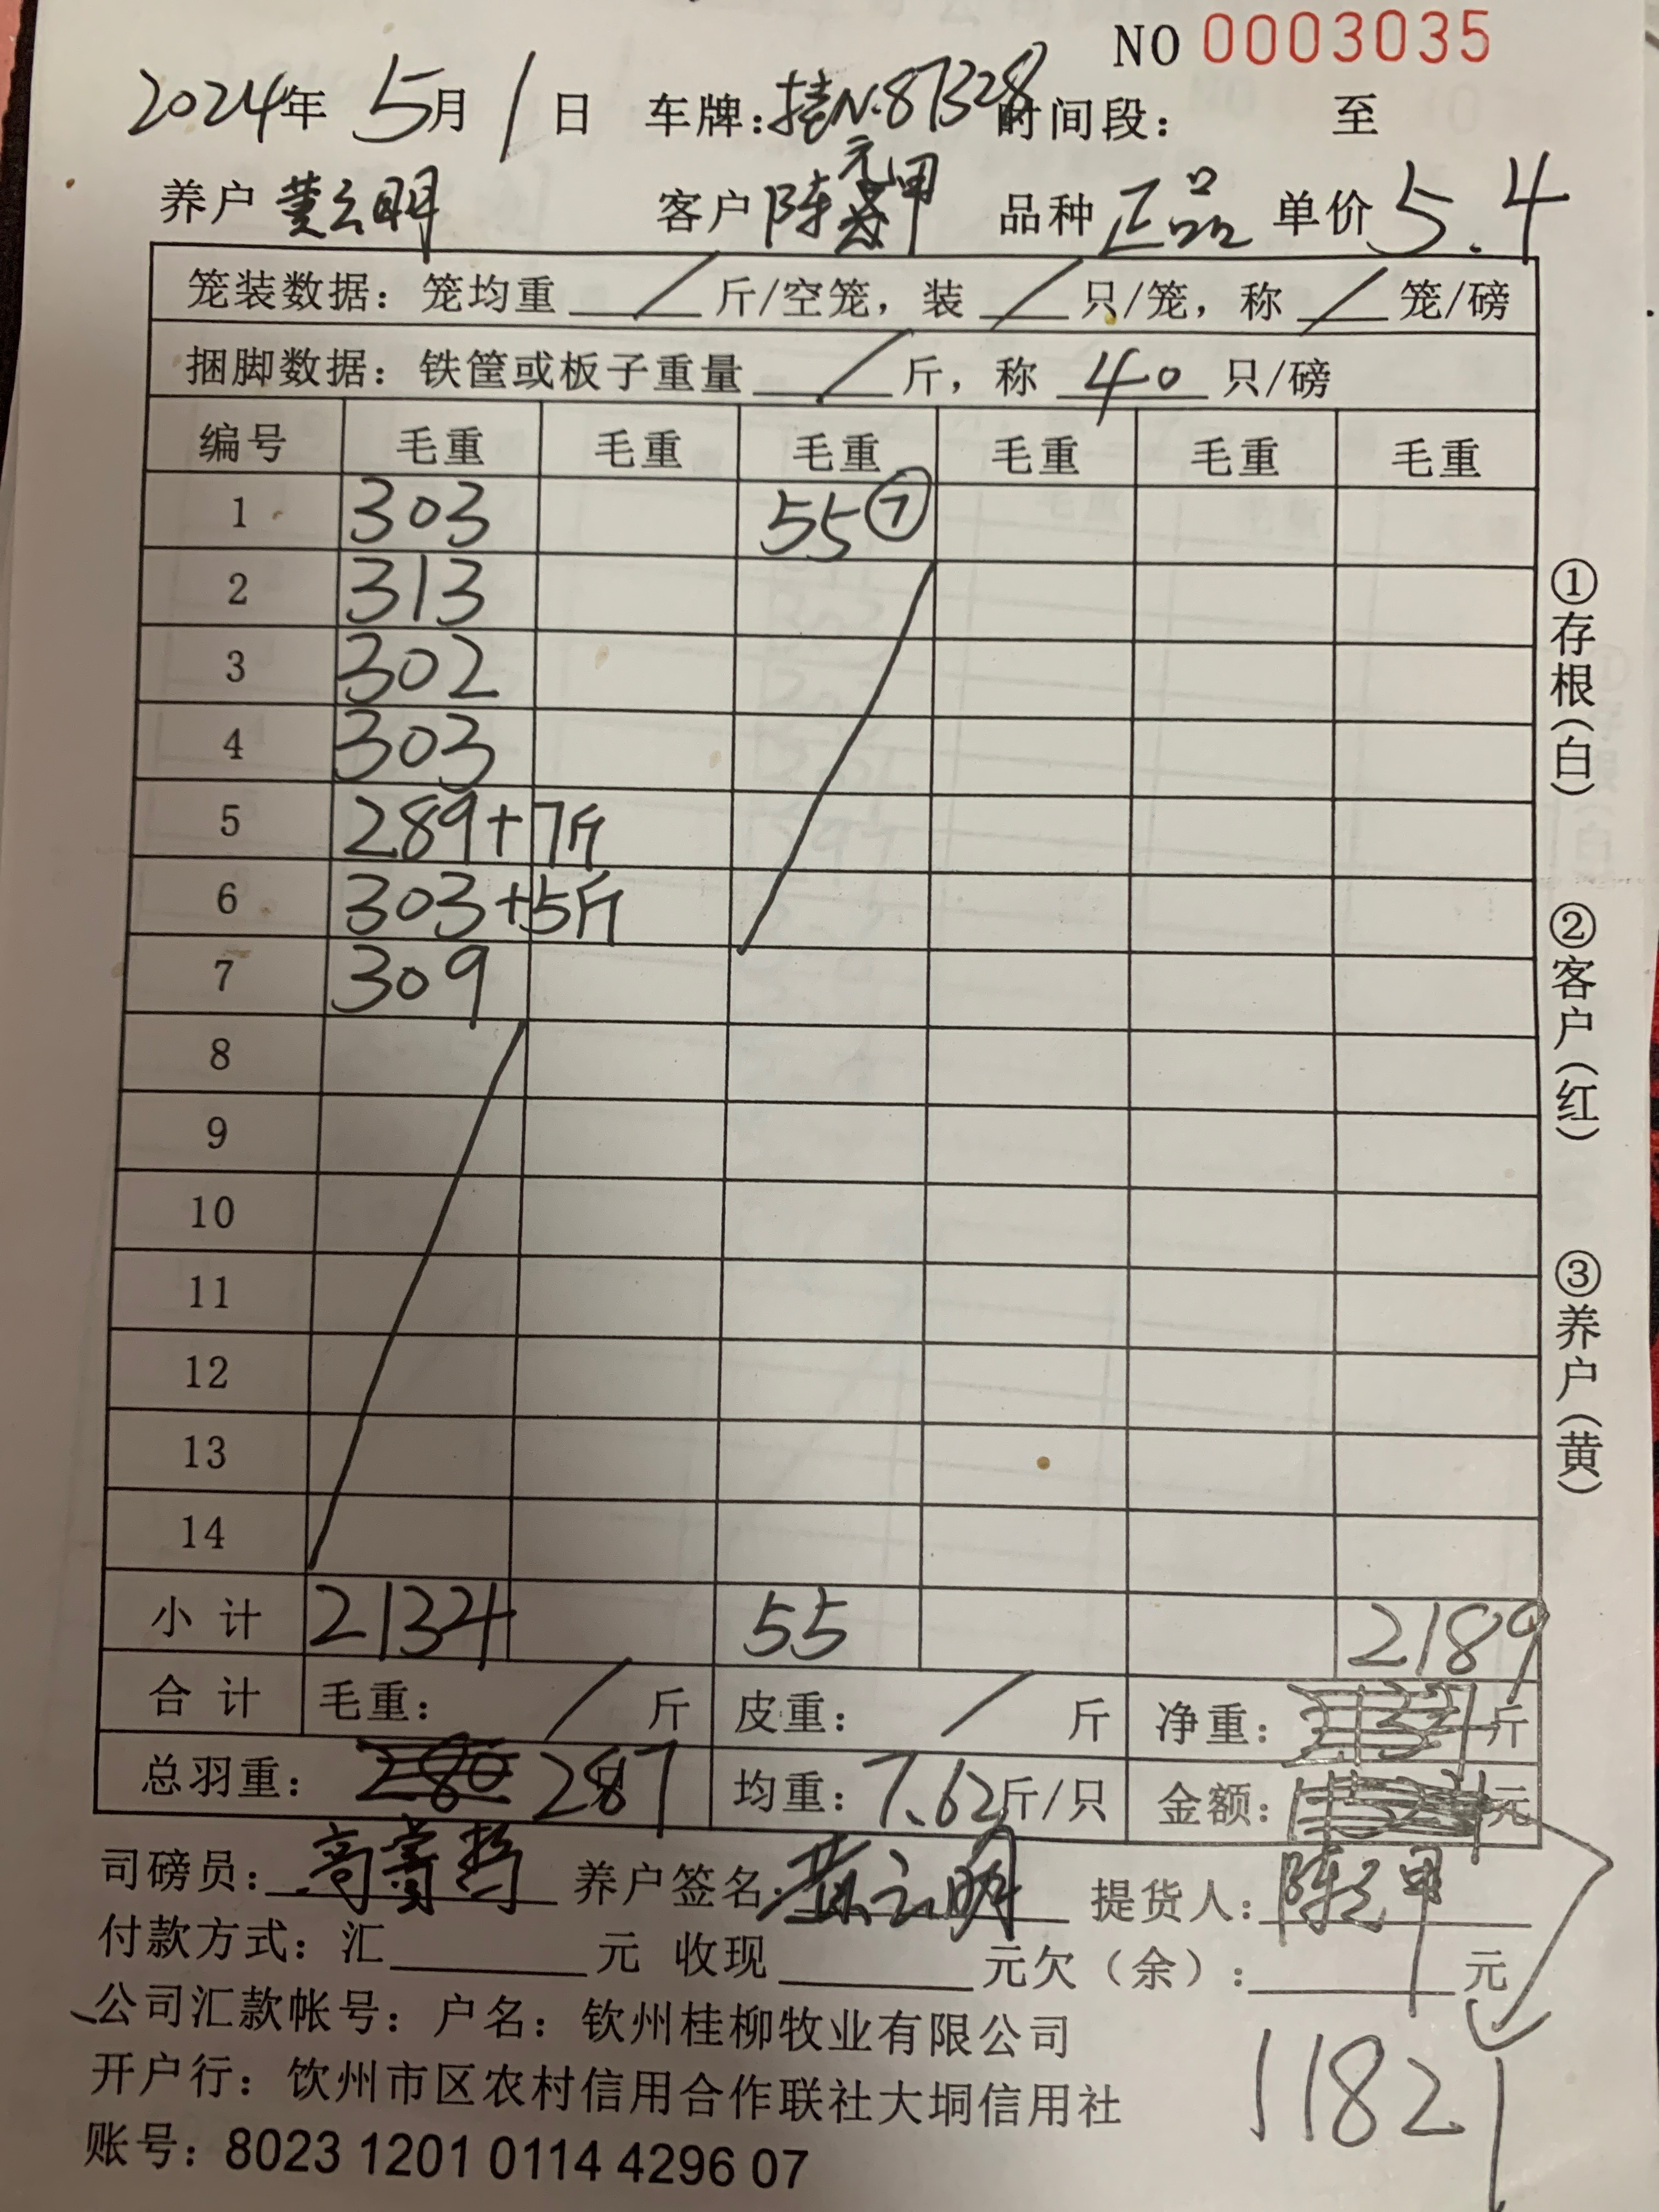 NO 0003035
2024年 5月 1日 车牌：桂N.87328 时间段： 至
养户 黄云明 客户 陈元甲 品种 正品 单价 5.4
笼装数据：笼均重 / 斤/空笼，装 / 只/笼，称 / 笼/磅
捆脚数据：铁筐或板子重量 / 斤，称 40 只/磅
编号 毛重 毛重 毛重 毛重 毛重 毛重
1 303 55⑦
2 313
3 302
4 303
5 289+7斤
6 303+5斤
7 309
8
9
10
11
12
13
14
小计 2134 55 2189
合计 毛重： / 斤 皮重： / 斤 净重： 斤
总羽重： 280 287 只 均重：7.62斤/只 金额： 元
司磅员： 养户签名：黄云明 提货人：陈元甲
付款方式：汇 元 收现 元欠（余）： 元
公司汇款帐号：户名：钦州桂柳牧业有限公司
11821
开户行：钦州市区农村信用合作联社大垌信用社
账号：8023 1201 0114 4296 07
①存根（白）
②客户（红）
③养户（黄）